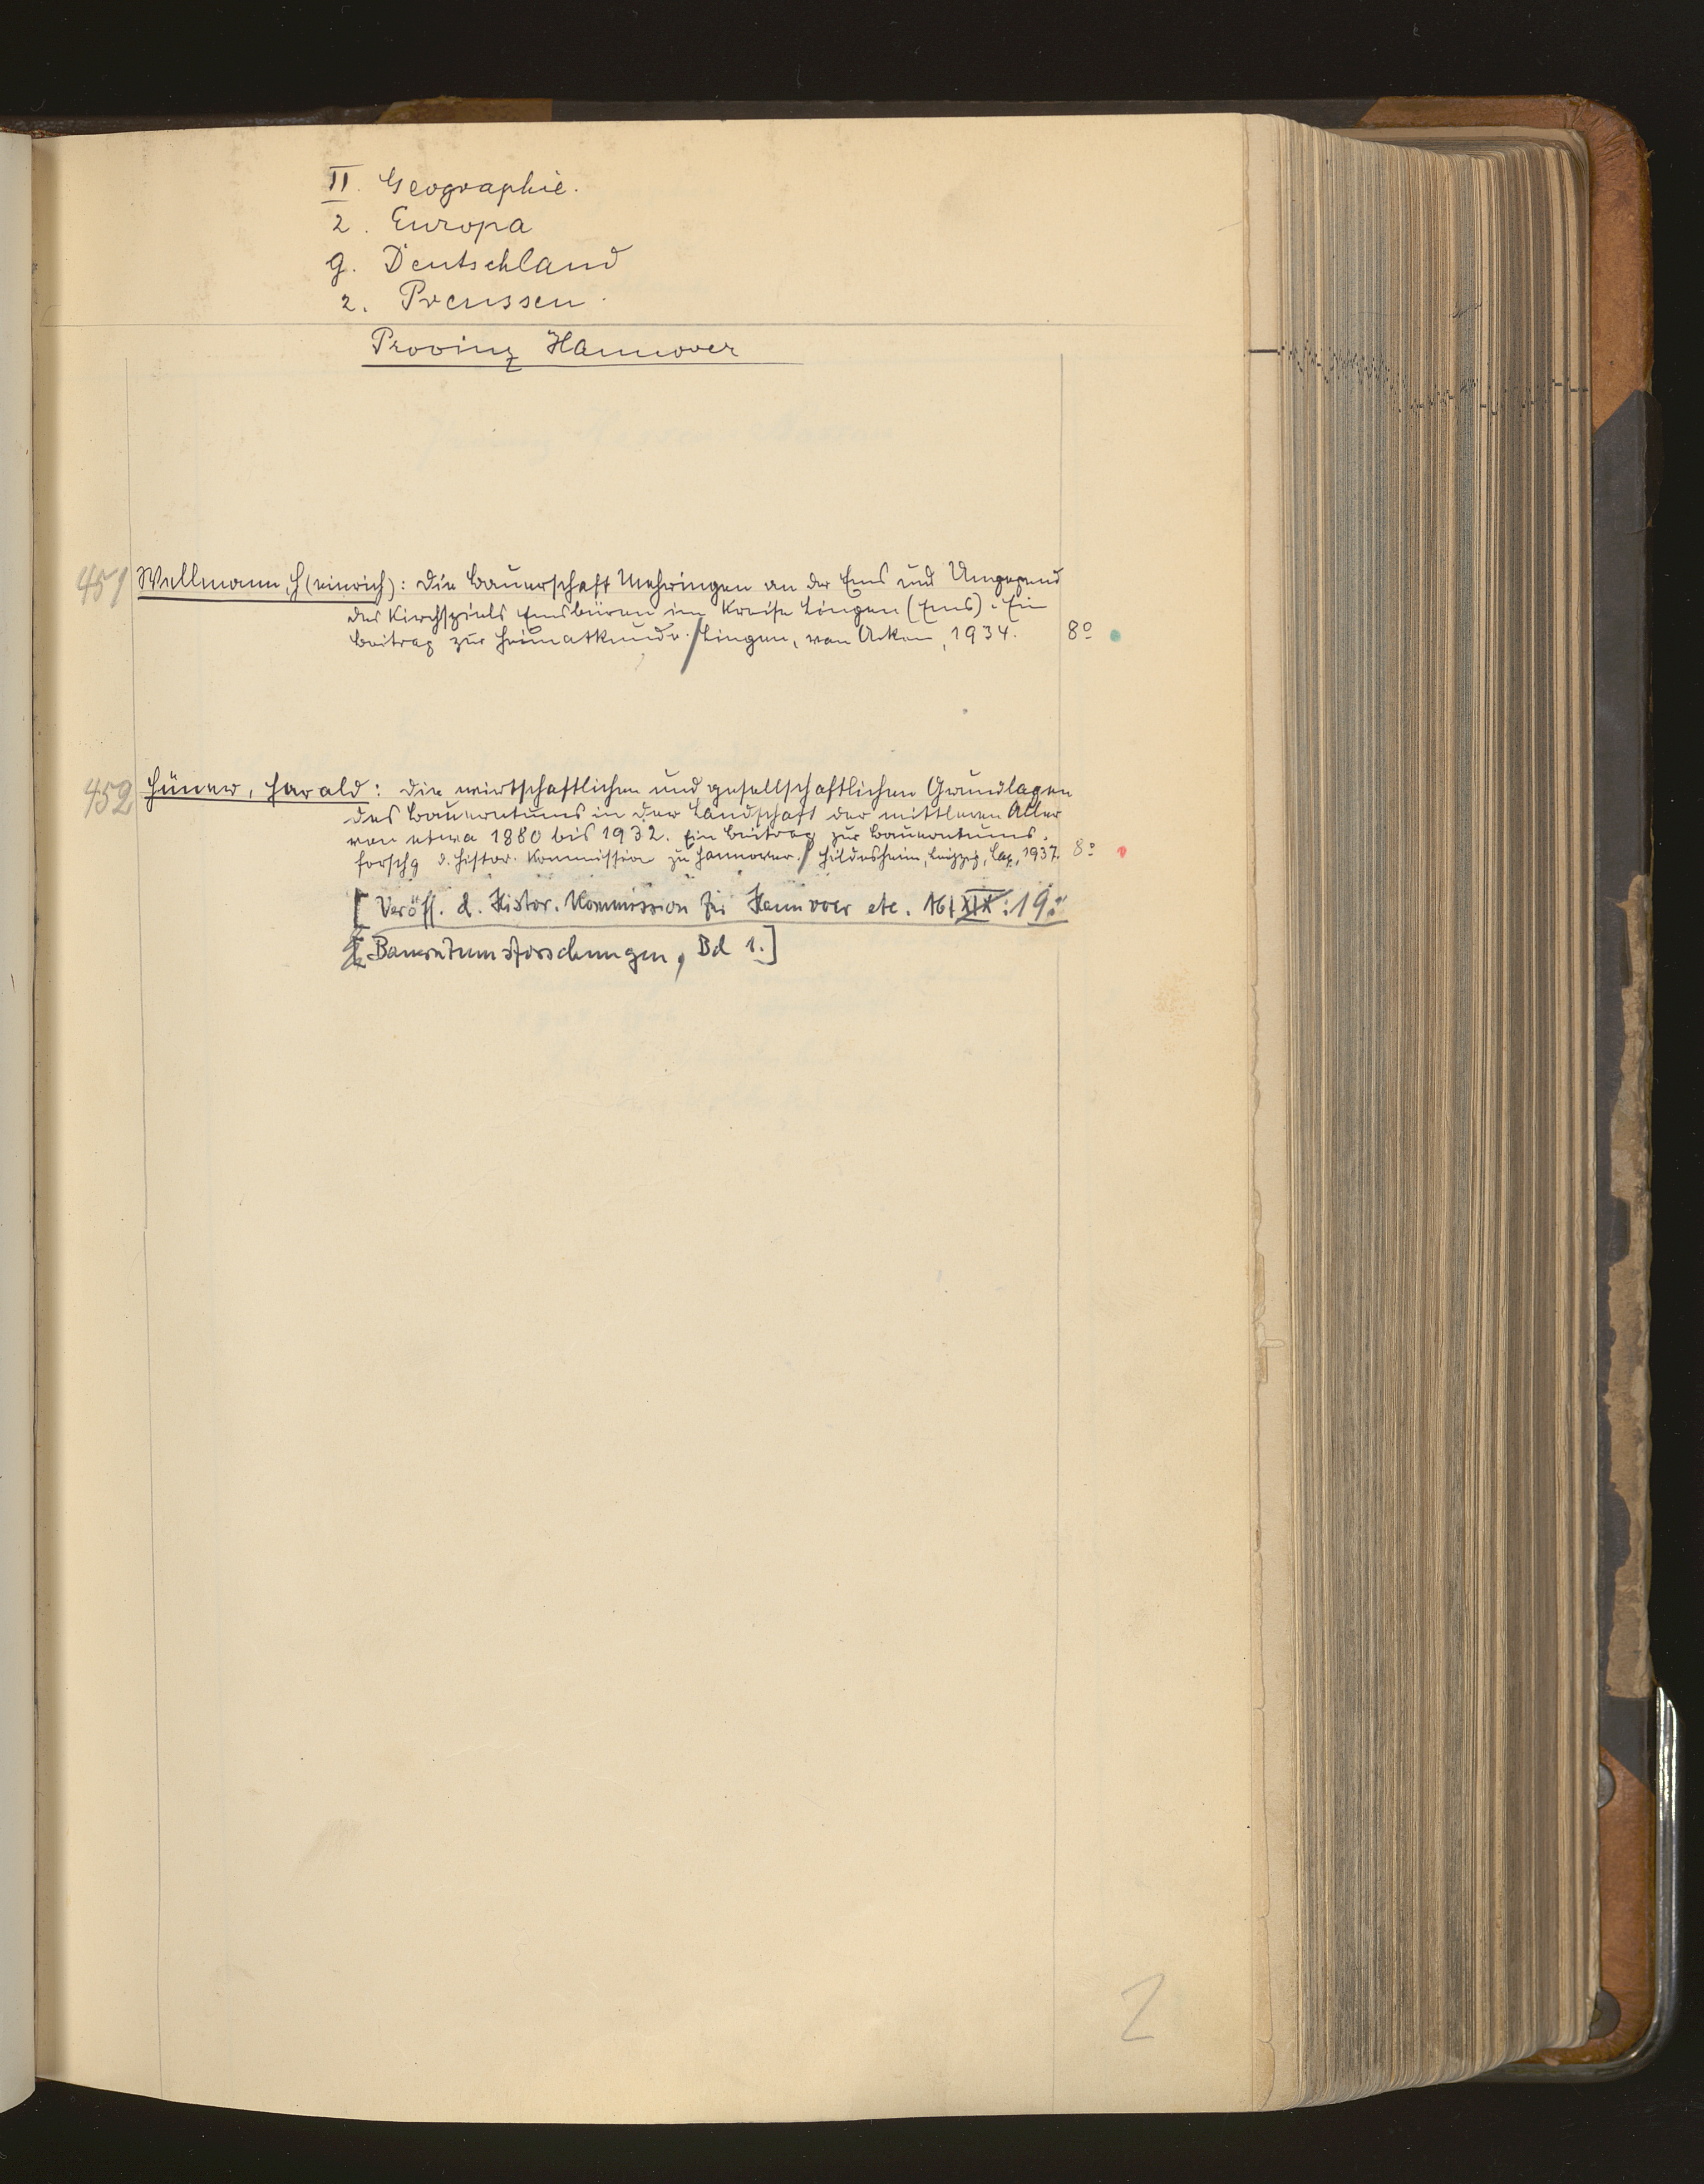 II. Geographie.
2. Europa
g. Deutschland
2. Preussen.
Provinz Hannover
451 Wellmann, H(einrich): Die Bauerschaft Mehringen an der Ems und Umgegend
des Kirchspiels Emsbüren im Kreise Lingen (Ems). Ein
Beitrag zur Heimatkunde. / Lingen, van Acken, 1934. 8º
452 Hüner, Harald: Die wirtschaftlichen und gesellschaftlichen Grundlagen
des Bauerntums in der Landschaft der mittleren Aller
von etwa 1880 bis 1932. Ein Beitrag zur Bauerntums-
forschg d. Histor. Kommission zu Hannover. / Hildesheim, Leipzig, Lax, 1937. 8º
[Veröff. d. Histor. Kommission für Hannover etc. XIX: 19.
Bauerntumsforschungen, Bd 1.]
2